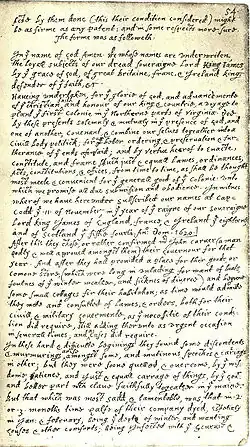 54
so by them done (this their condition considered) might
be as firme as any patent; and in some respects more sure.
The forme was as followeth.
In yᵉ name of god Amen. We whose names are underwriten,
the loyall subjects of our dread soveraigne Lord King James
by yᵉ grace of god, of great Britaine, franc, & Ireland king,
defender of yᵉ faith, &c
Haveing undertaken, for yᵉ glorie of god, and advancemente
of yᵉ christian faith and honour of our king & countrie, a voyage to
plant yᵉ first colonie in yᵉ Northerne parts of Virginia· doe
by these presents solemnly & mutualy in yᵉ presence of god, and
one of another, covenant, & combine our selves togeather into a
civill body politick; for our better ordering, & preservation & fur=
therance of yᵉ ends aforesaid; and by vertue hearof to enacte,
constitute, and frame shuch just & equall lawes, ordinances,
acts, constitutions, & offices, from time to time, as shall be thought
most meete & convenient for yᵉ generall good of yᵉ colonie: unto
which we promise all due submission and obedience. In witnes
wherof we have hereunder subscribed our names at Cap=
Codd yᵉ ·11· of November, in yᵉ year of yᵉ raigne of our soveraigne
Lord king James of England, france, & Ireland yᵉ eighteenth
and of Scotland yᵉ fiftie fourth. Anº: Dom. 1620·
After this they chose, or rather confirmed mʳ John Carver (a man
godly & well approved amongst them) their Governour for that
year. And after they had provided a place for their goods, or
comone store, (which were long in unlading for want of boats,
foulnes of yᵉ winter weather, and sicknes of diverce) and begune
some small cottages for their habitation; as time would admitte
they mette and consulted of lawes, & orders, both for their
civill, & military Govermente, as yᵉ necessitie of their condi-
tion did require, still adding therunto as urgent occasion
in severall times, and as cases did require.
In these hard & difficulte beginings they found some discontents
& murmurings arise amongst some, and mutinous speeches & cariags
in other; but they were soone quelled, & overcome, by yᵉ wis-
dome, patience, and just & equall carrage of things, by yᵉ Govʳ
and better part wᶜʰ clave faithfully togeather in yᵉ maine.
But that which was most sadd, & lamentable, was, that in ·2·
or ·3· moneths time halfe of their company dyed, espetialy
in Jan: & february, being yᵉ depth of winter, and wanting
houses & other comforts; being Infected with yᵉ Scurvie &